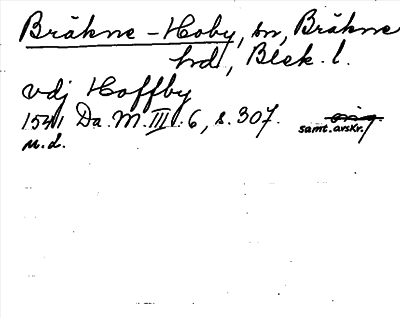 Bräkne-Hoby, sn, Bräkne
hd, Blek. l.
vdj Hoffby
1541 Da. M. III. 6, s. 307. orig.
samt. avskr.
u. d.